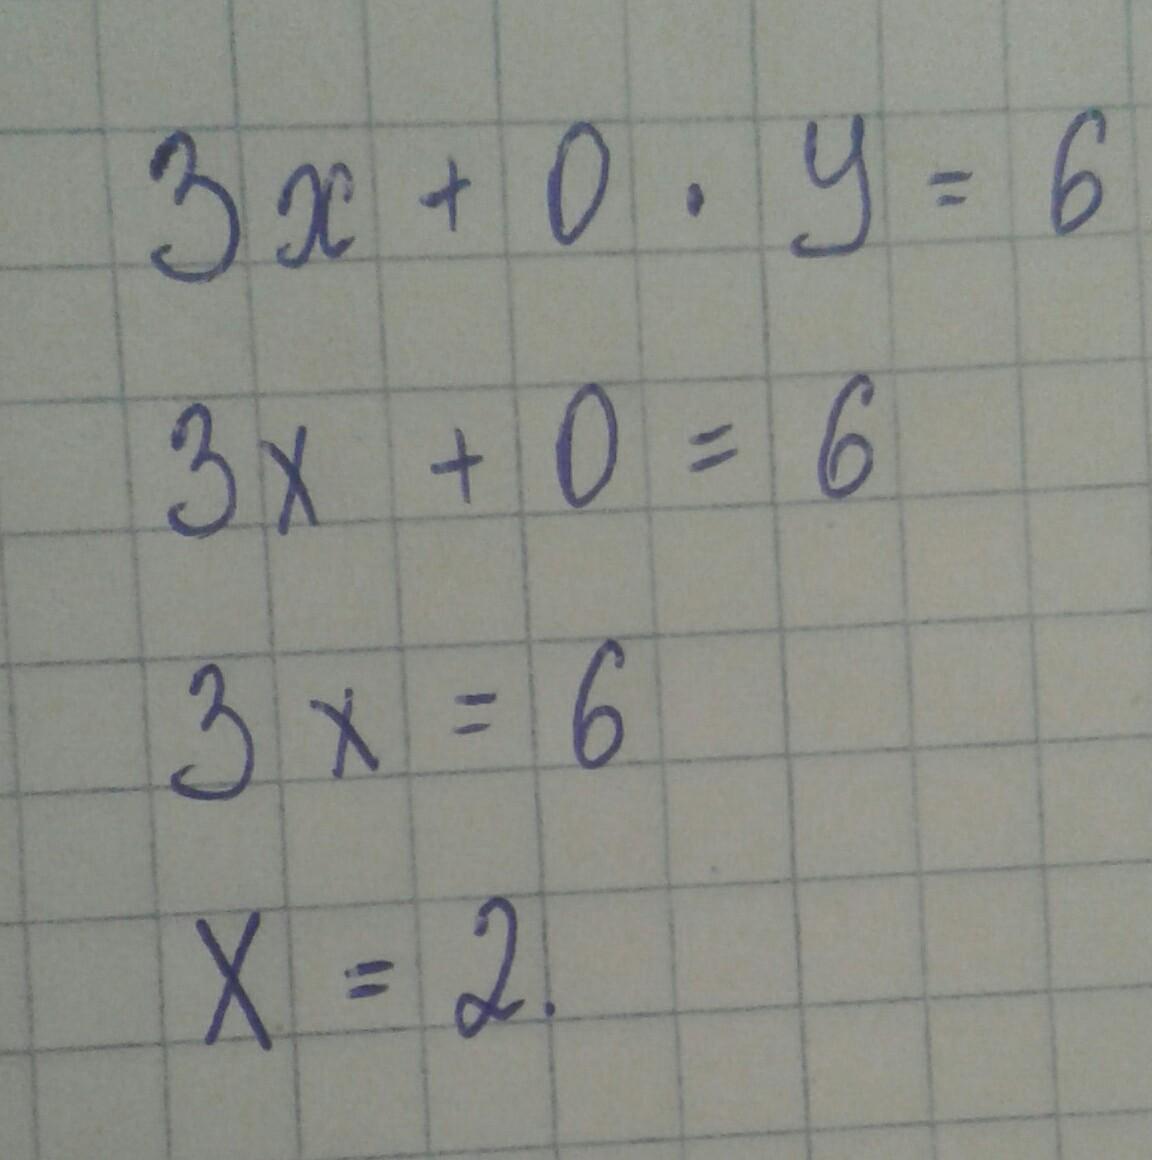 3x + 0 · y = 6
3x + 0 = 6
3x = 6
x = 2.